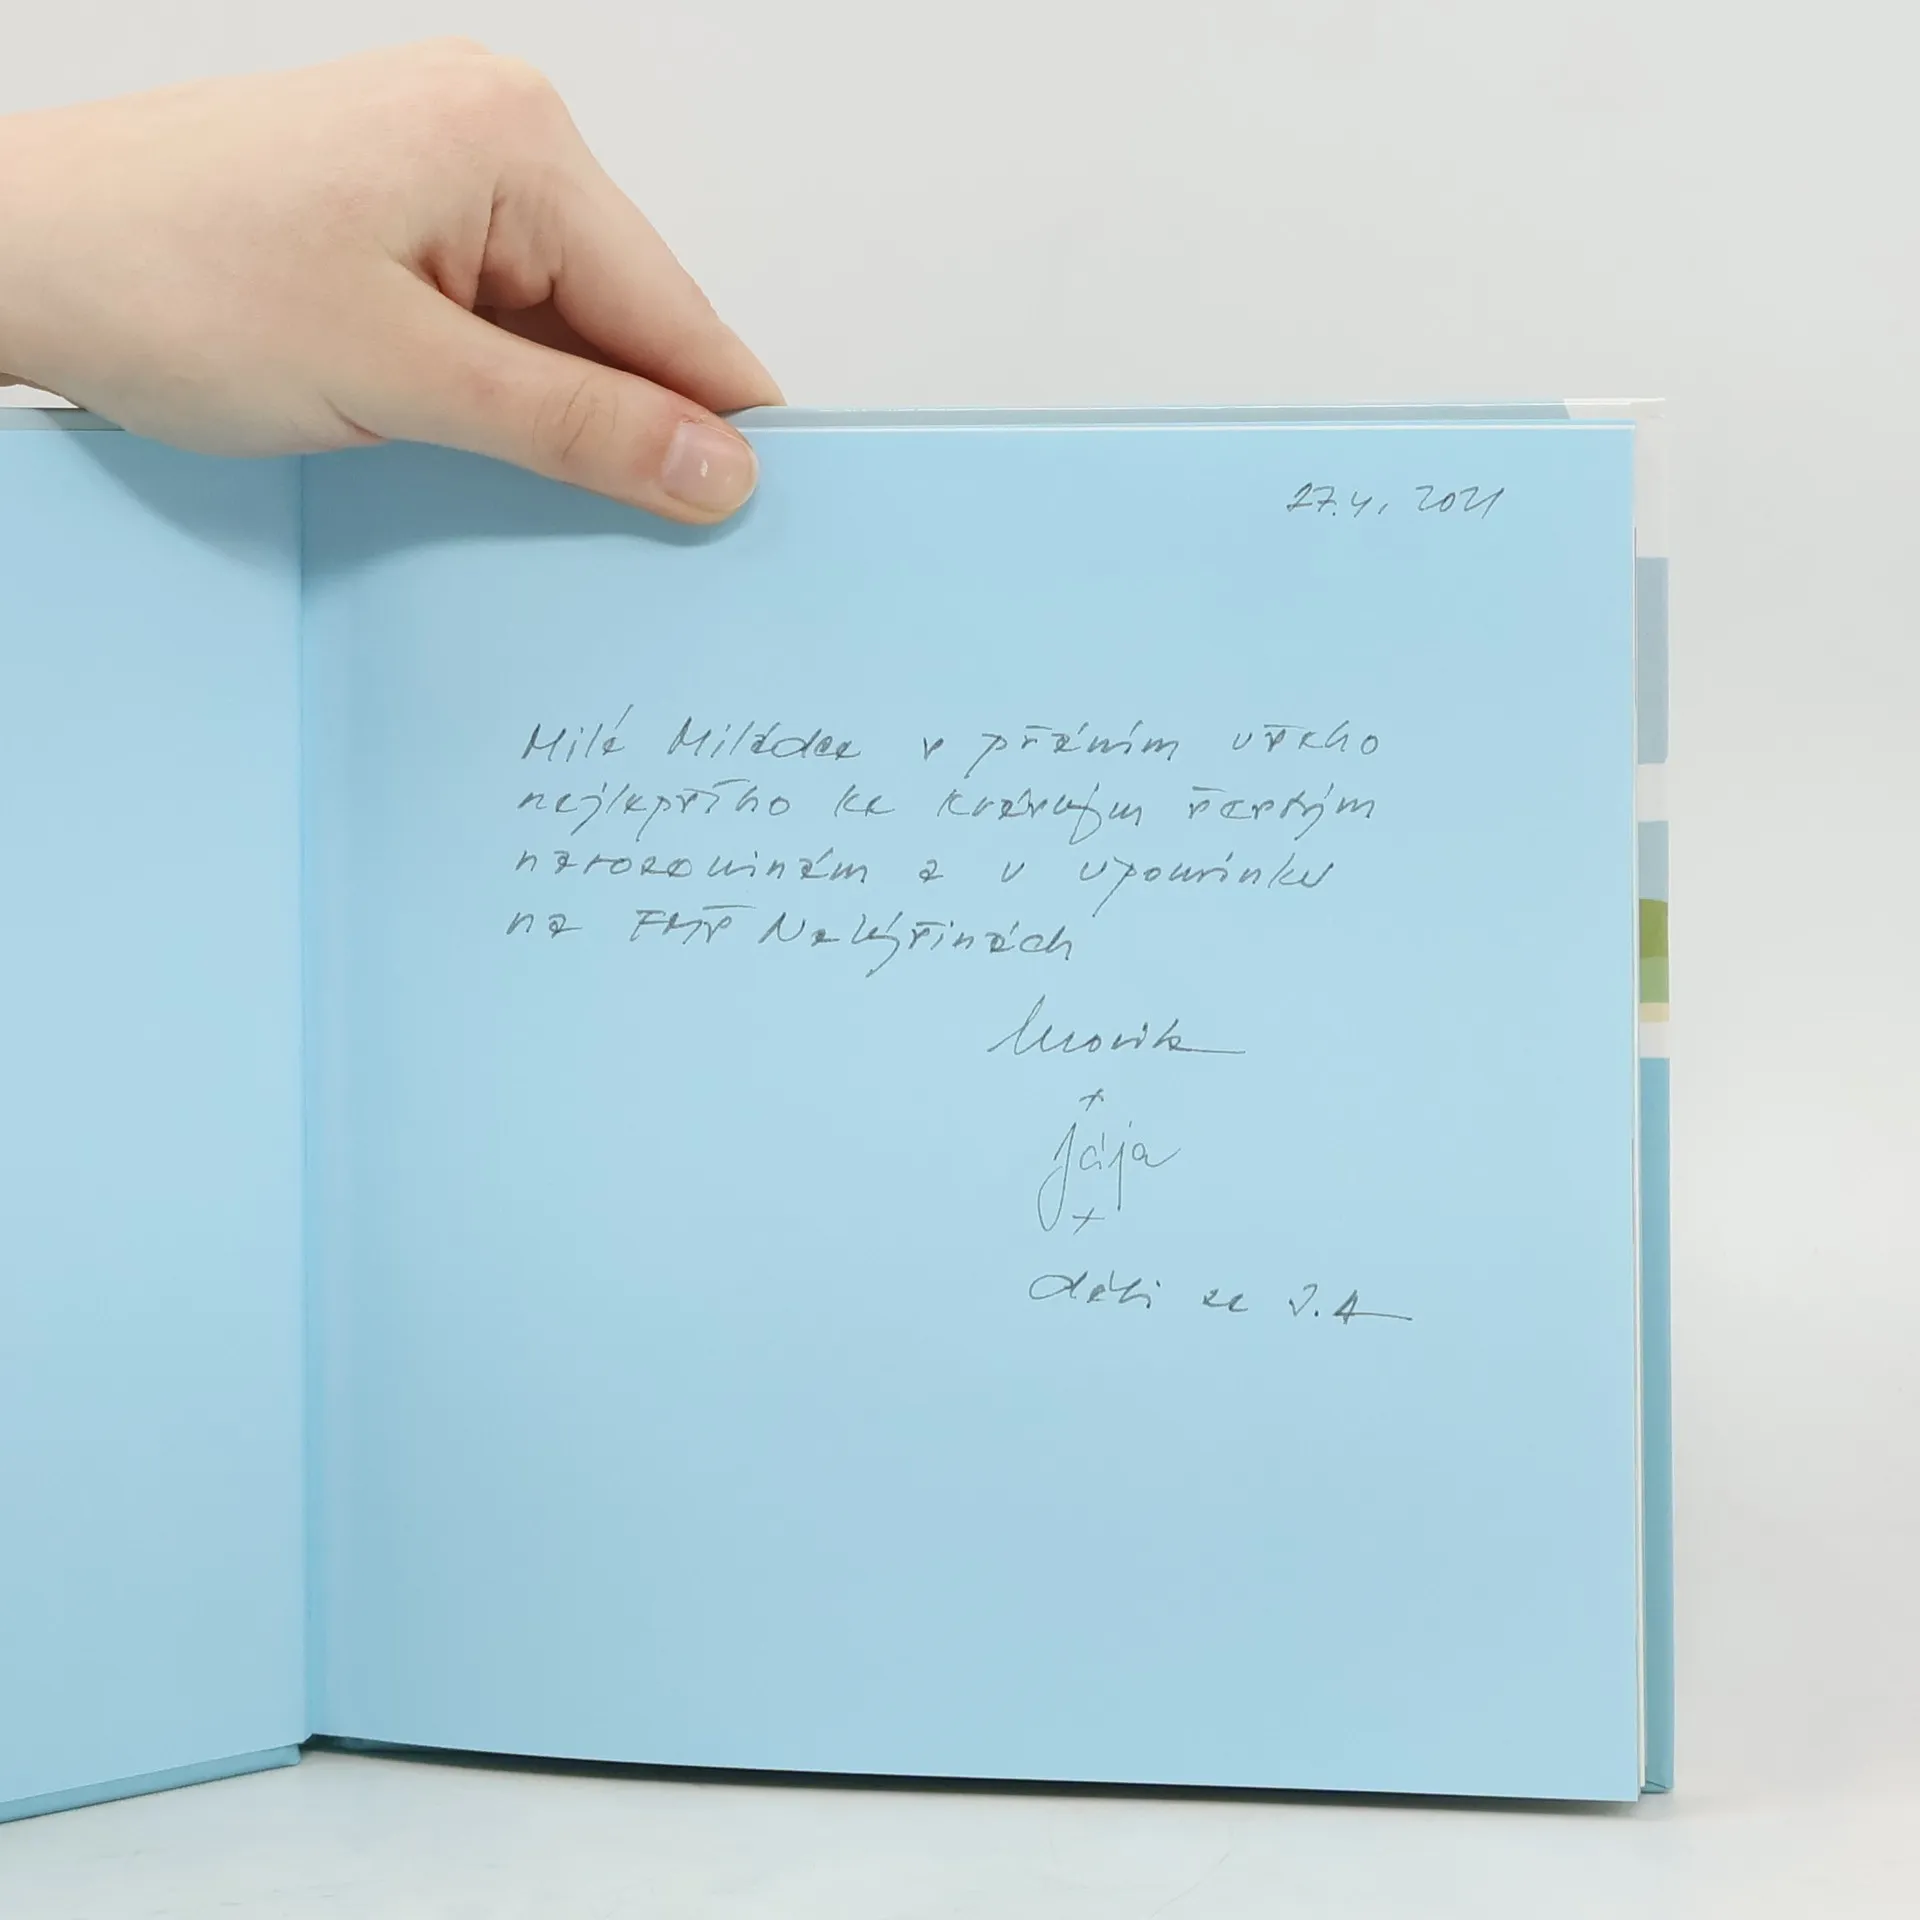 27.4. 2021
Milé Miládce s přáním všeho
nejlepšího ke krásným šestým
narozeninám a v upomínku
na FMŠ Nalýšinách
Jája
děti ze 3.A